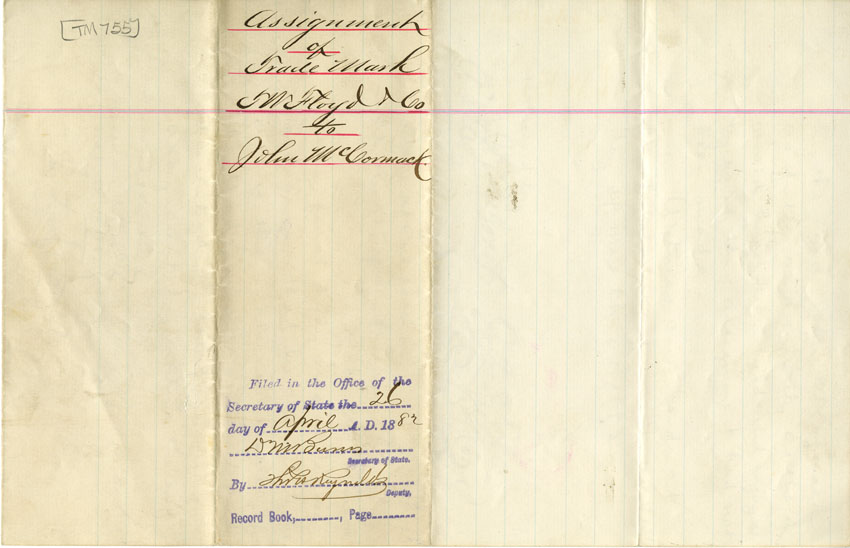 [TM 755]
Assignment
of
Trade Mark
Floyd & Co
to
John McCormack
Filed in the Office of the
Secretary of State the 26
day of April A. D. 1882
D M Burns
Secretary of State.
By Reynolds
Deputy.
Record Book, , Page